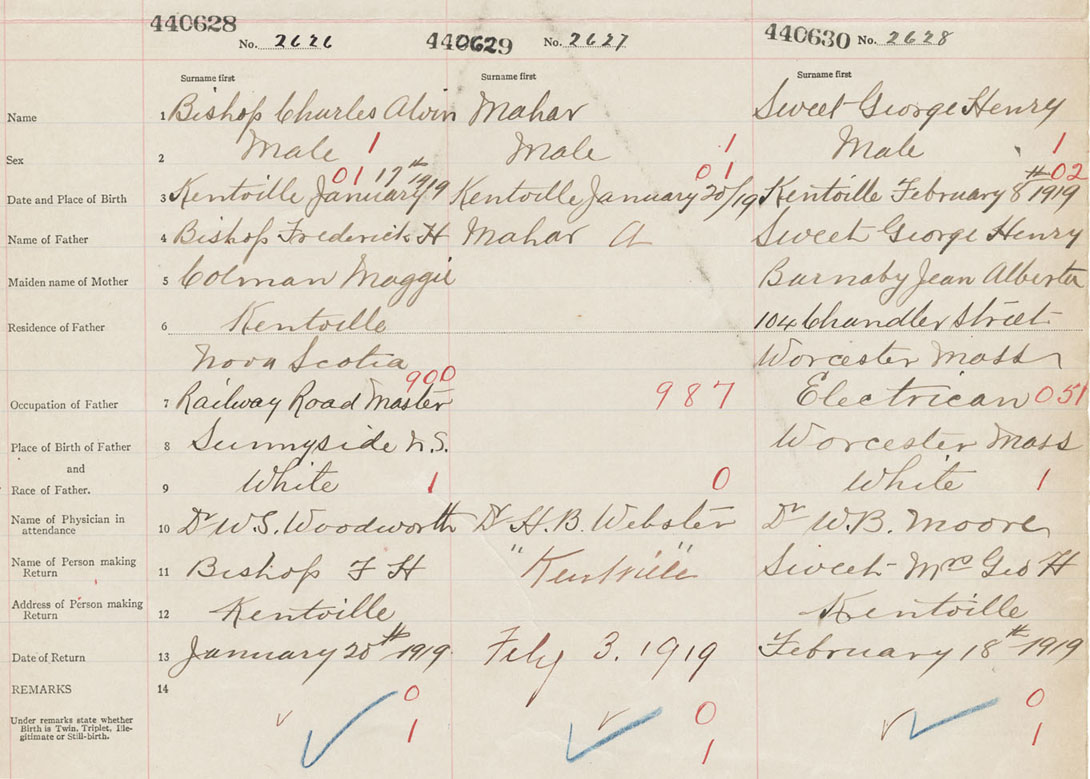 440628 No. 2626 440629 No. 2627 440630 No. 2628
Surname first Surname first Surname first
Name 1 Bishop Charles Alvin Mahar Sweet George Henry
Sex 2 Male 1 Male 1 Male 1
01 01 02
Date and Place of Birth 3 Kentville January 17th 1919 Kentville January 20/19 Kentville February 8th 1919
Name of Father 4 Bishop Frederick H Mahar A Sweet George Henry
Maiden name of Mother 5 Colman Maggie Barnaby Jean Alberta
Residence of Father 6 Kentville 104 Chandler Street
Nova Scotia Worcester Mass
900
Occupation of Father 7 Railway Road Master 987 Electrican 051
Place of Birth of Father 8 Sunnyside N.S. Worcester Mass
and
Race of Father. 9 White 1 0 White 1
Name of Physician in
attendance 10 Dr W.S. Woodworth Dr H.B. Webster Dr W.B. Moore
Name of Person making
Return 11 Bishop F H "Kentville" Sweet Mrs Geo H
Address of Person making
Return 12 Kentville Kentville
Date of Return 13 January 20th 1919. Feby 3. 1919 February 18th 1919
REMARKS 14
0 0 0
Under remarks state whether
Birth is Twin, Triplet, Ille-
gitimate or Still-birth.
1 1 1